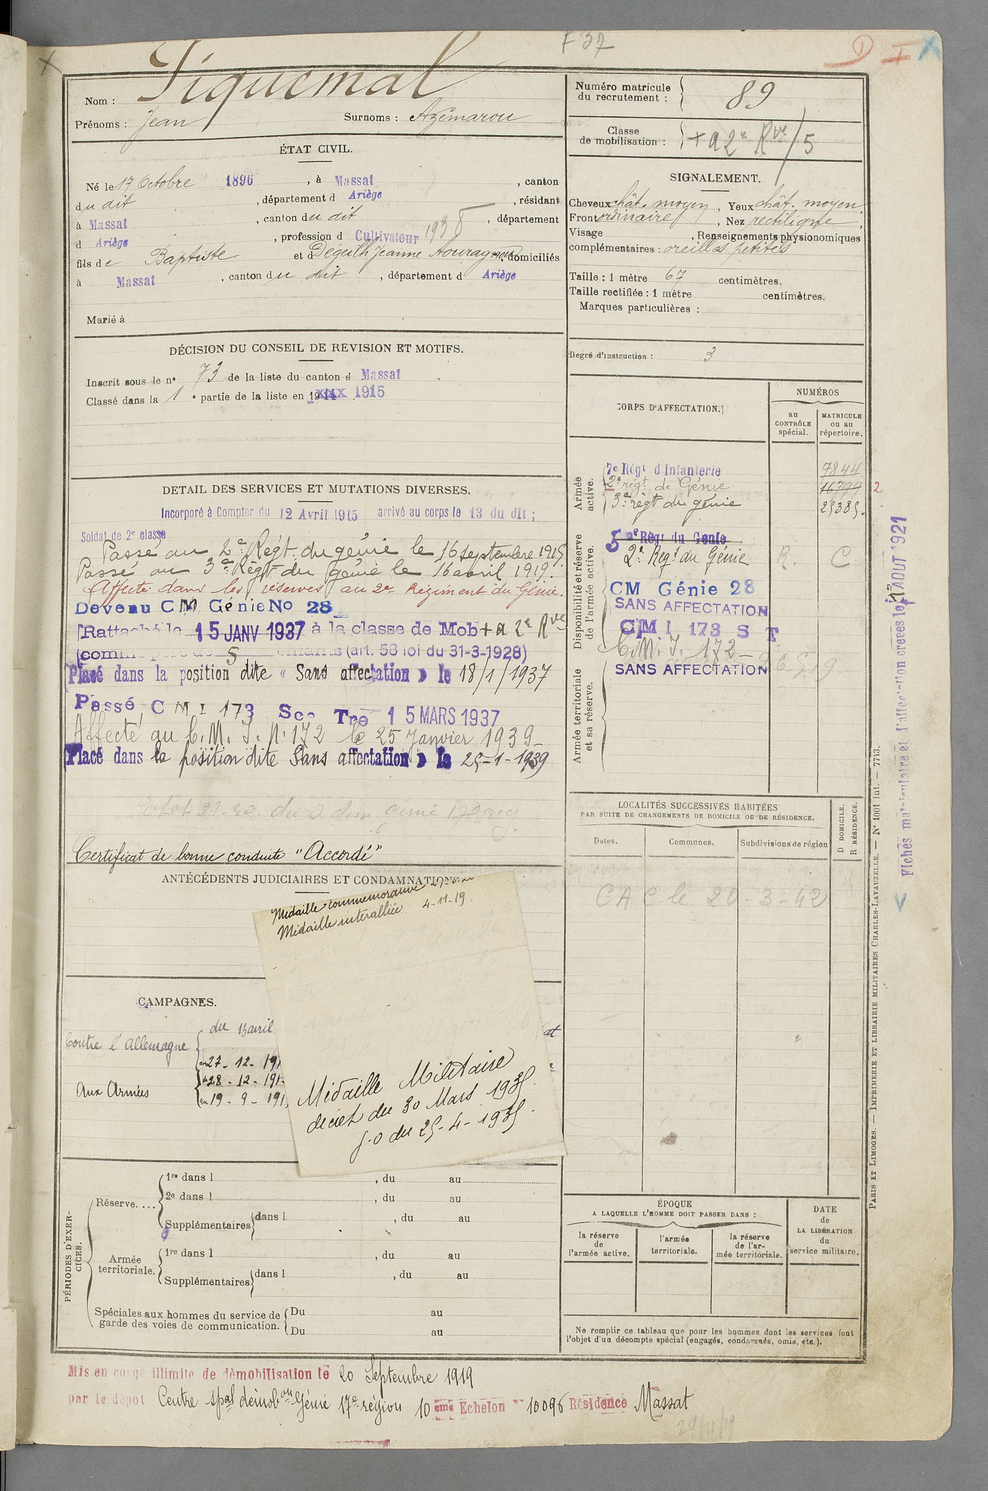 F 37
D I X
Nom : Piquemal
Prénoms : Jean Surnoms : Azémarou
ÉTAT CIVIL.
Né le 17 Octobre 1896, à Massat, canton
du dit, département d Ariège, résidant
à Massat, canton du dit, département
d Ariège, profession d Cultivateur
fils de Baptiste et d Degeilh Jeanne domiciliés
à Massat, canton du dit, département d Ariège
Marié à
DÉCISION DU CONSEIL DE REVISION ET MOTIFS.
Inscrit sous le nº 73 de la liste du canton d Massat
Classé dans la 1 e partie de la liste en 1915
DETAIL DES SERVICES ET MUTATIONS DIVERSES.
Incorporé à Compter du 12 Avril 1915 arrivé au corps le 13 du dit ;
Soldat de 2e classe
Passé au 2e Régt. du génie le 16 septembre 1915
Passé au 3e Régt du génie le 16 avril 1919.
Affecté dans les réserves au 2e Régiment du Génie.
Devenu CM Génie No 28
Rattaché le 15 JANV 1937 à la classe de Mob + a 2e Rve
5 enfants (art. 58 loi du 31-3-1928)
Placé dans la position dite « Sans affectation » le 18/1/1937
Passé C M I 173 Sec Tre 15 MARS 1937
Affecté au C. M. I. n° 172 le 25 Janvier 1939
Placé dans la position dite Sans affectation » le 25-1-1939
Certificat de bonne conduite "Accordé"
ANTÉCÉDENTS JUDICIAIRES ET CONDAMNATIONS
Médaille commemorative
Médaille interalliée 4-11-19.
Médaille Militaire
décret du 30 Mars 1935.
J.O du 25-4-1935.
CAMPAGNES.
Contre l'Allemagne
du 13 avril
au 27-12-191
Aux Armées
du 28-12-191
au 19-9-191
PÉRIODES D'EXERCICES.
Réserve....
1re dans l , du au
2e dans l , du au
Supplémentaires dans l , du au
Armée territoriale.
1re dans l , du au
Supplémentaires dans l , du au
Spéciales aux hommes du service de garde des voies de communication.
Du au
Du au
Mis en congé illimité de démobilisation le 20 Septembre 1919
par le dépôt Centre spal démobon Génie 17e région 10 ème Echelon n° 10096 Résidence Massat
Numéro matricule du recrutement : 89
Classe de mobilisation : + a 2e Rve/5
SIGNALEMENT.
Cheveux chât. moyen, Yeux chât. moyen
Front ordinaire, Nez rectiligne
Visage , Renseignements physionomiques
complémentaires : oreilles petites
Taille : 1 mètre 67 centimètres.
Taille rectifiée : 1 mètre centimètres.
Marques particulières :
Degré d'instruction : 3
CORPS D'AFFECTATION.
NUMÉROS
au CONTRÔLE spécial.
MATRICULE ou au répertoire.
Armée active.
7e Régt d'Infanterie 7844
2e régt. de Génie 16794 2
3e régt du génie 25385.
Disponibilité et réserve de l'armée active.
5 2e Régt du Genie
2e Regt du Génie R. C
CM Génie 28
SANS AFFECTATION
CMI 173 S T
C. M. I. 172
SANS AFFECTATION
Armée territoriale et sa réserve.
LOCALITÉS SUCCESSIVES HABITÉES
PAR SUITE DE CHANGEMENTS DE DOMICILE OU DE RÉSIDENCE.
Dates. Communes. Subdivisions de région
D DOMICILE.
R RÉSIDENCE.
CAC le 20-3-42
ÉPOQUE
A LAQUELLE L'HOMME DOIT PASSER DANS :
la réserve de l'armée active.
l'armée territoriale.
la réserve de l'armée territoriale.
DATE de LA LIBÉRATION du service militaire.
Ne remplir ce tableau que pour les hommes dont les services font
l'objet d'un décompte spécial (engagés, condamnés, omis, etc.).
PARIS ET LIMOGES. — IMPRIMERIE ET LIBRAIRIE MILITAIRES CHARLES-LAVAUZELLE. — Nº 1001 int. — 7743.
Fiches matriculaire et d'affectation créées le AOUT 1921